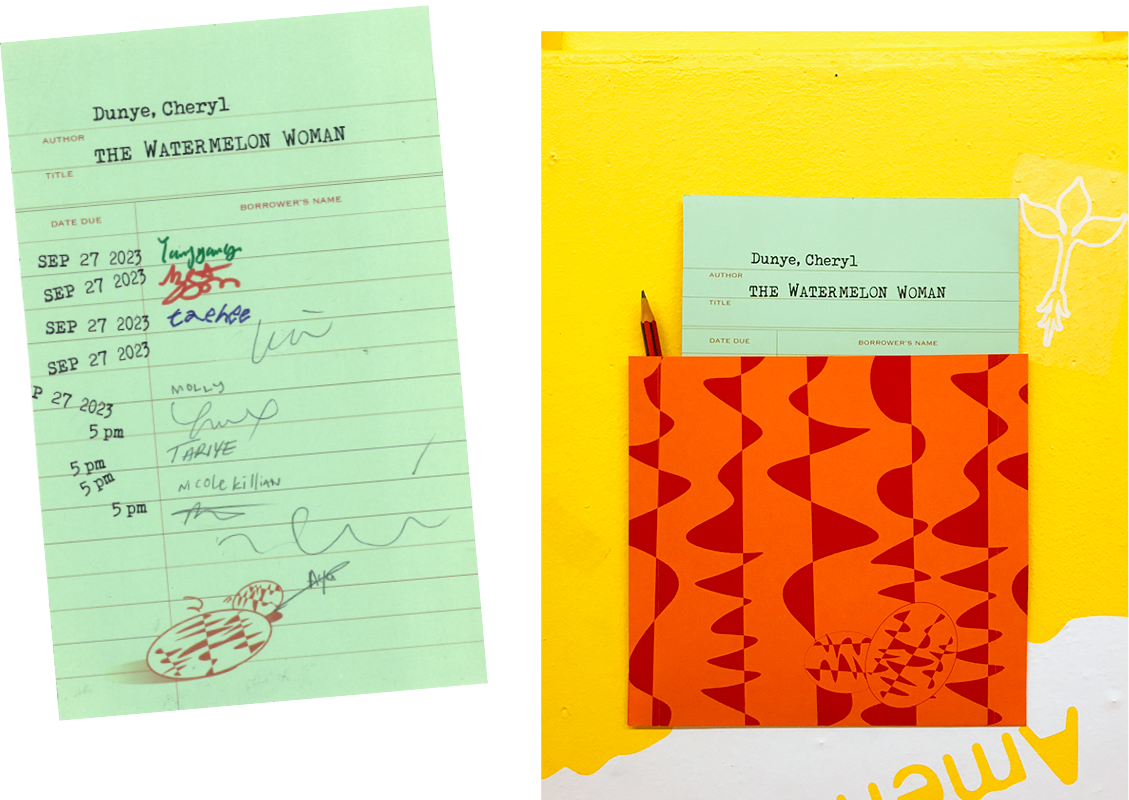 Dunye, Cheryl
AUTHOR
THE WATERMELON WOMAN
TITLE
DATE DUE BORROWER'S NAME
SEP 27 2023 Yangyang
SEP 27 2023
SEP 27 2023 taehee
SEP 27 2023
P 27 2023 MOLLY
5 pm
5 pm TARIYE
5 pm Nicole Killian
5 pm
Dunye, Cheryl
AUTHOR
THE WATERMELON WOMAN
TITLE
DATE DUE BORROWER'S NAME
Amem